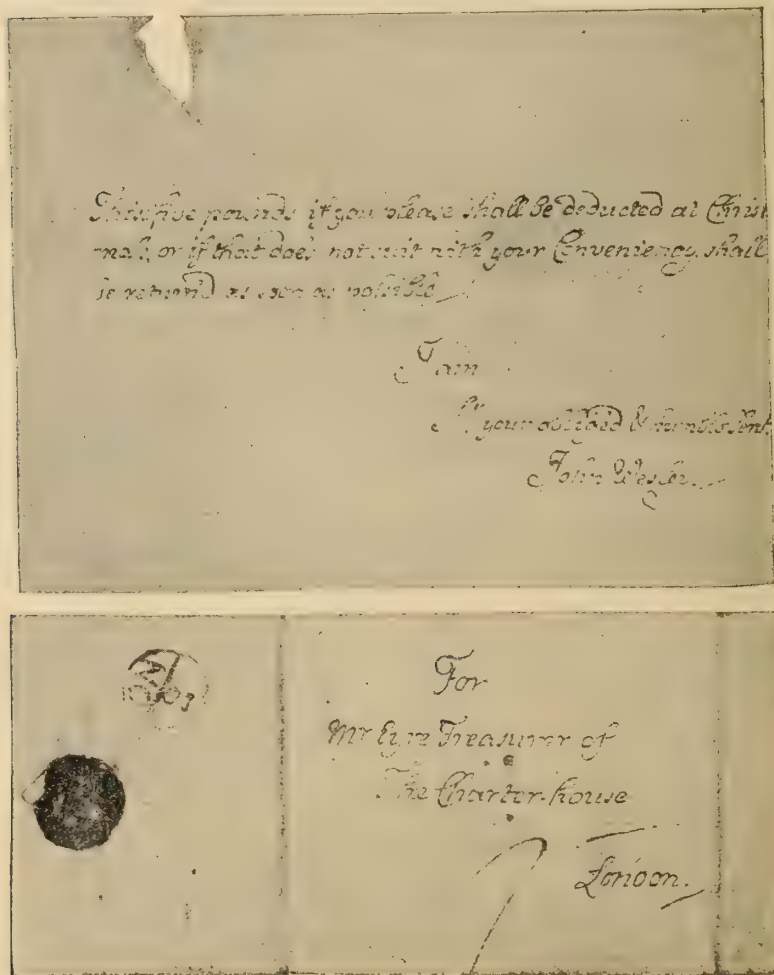 This five pounds if you please shall be deducted at Christ
mas, or if that does not suit with your Conveniency, shall
be return'd as soon as possible
I am
Sr your obliged & humble Servt
John Wesley.
For
Mr Eyre Treasurer of
The Charter-house
London.